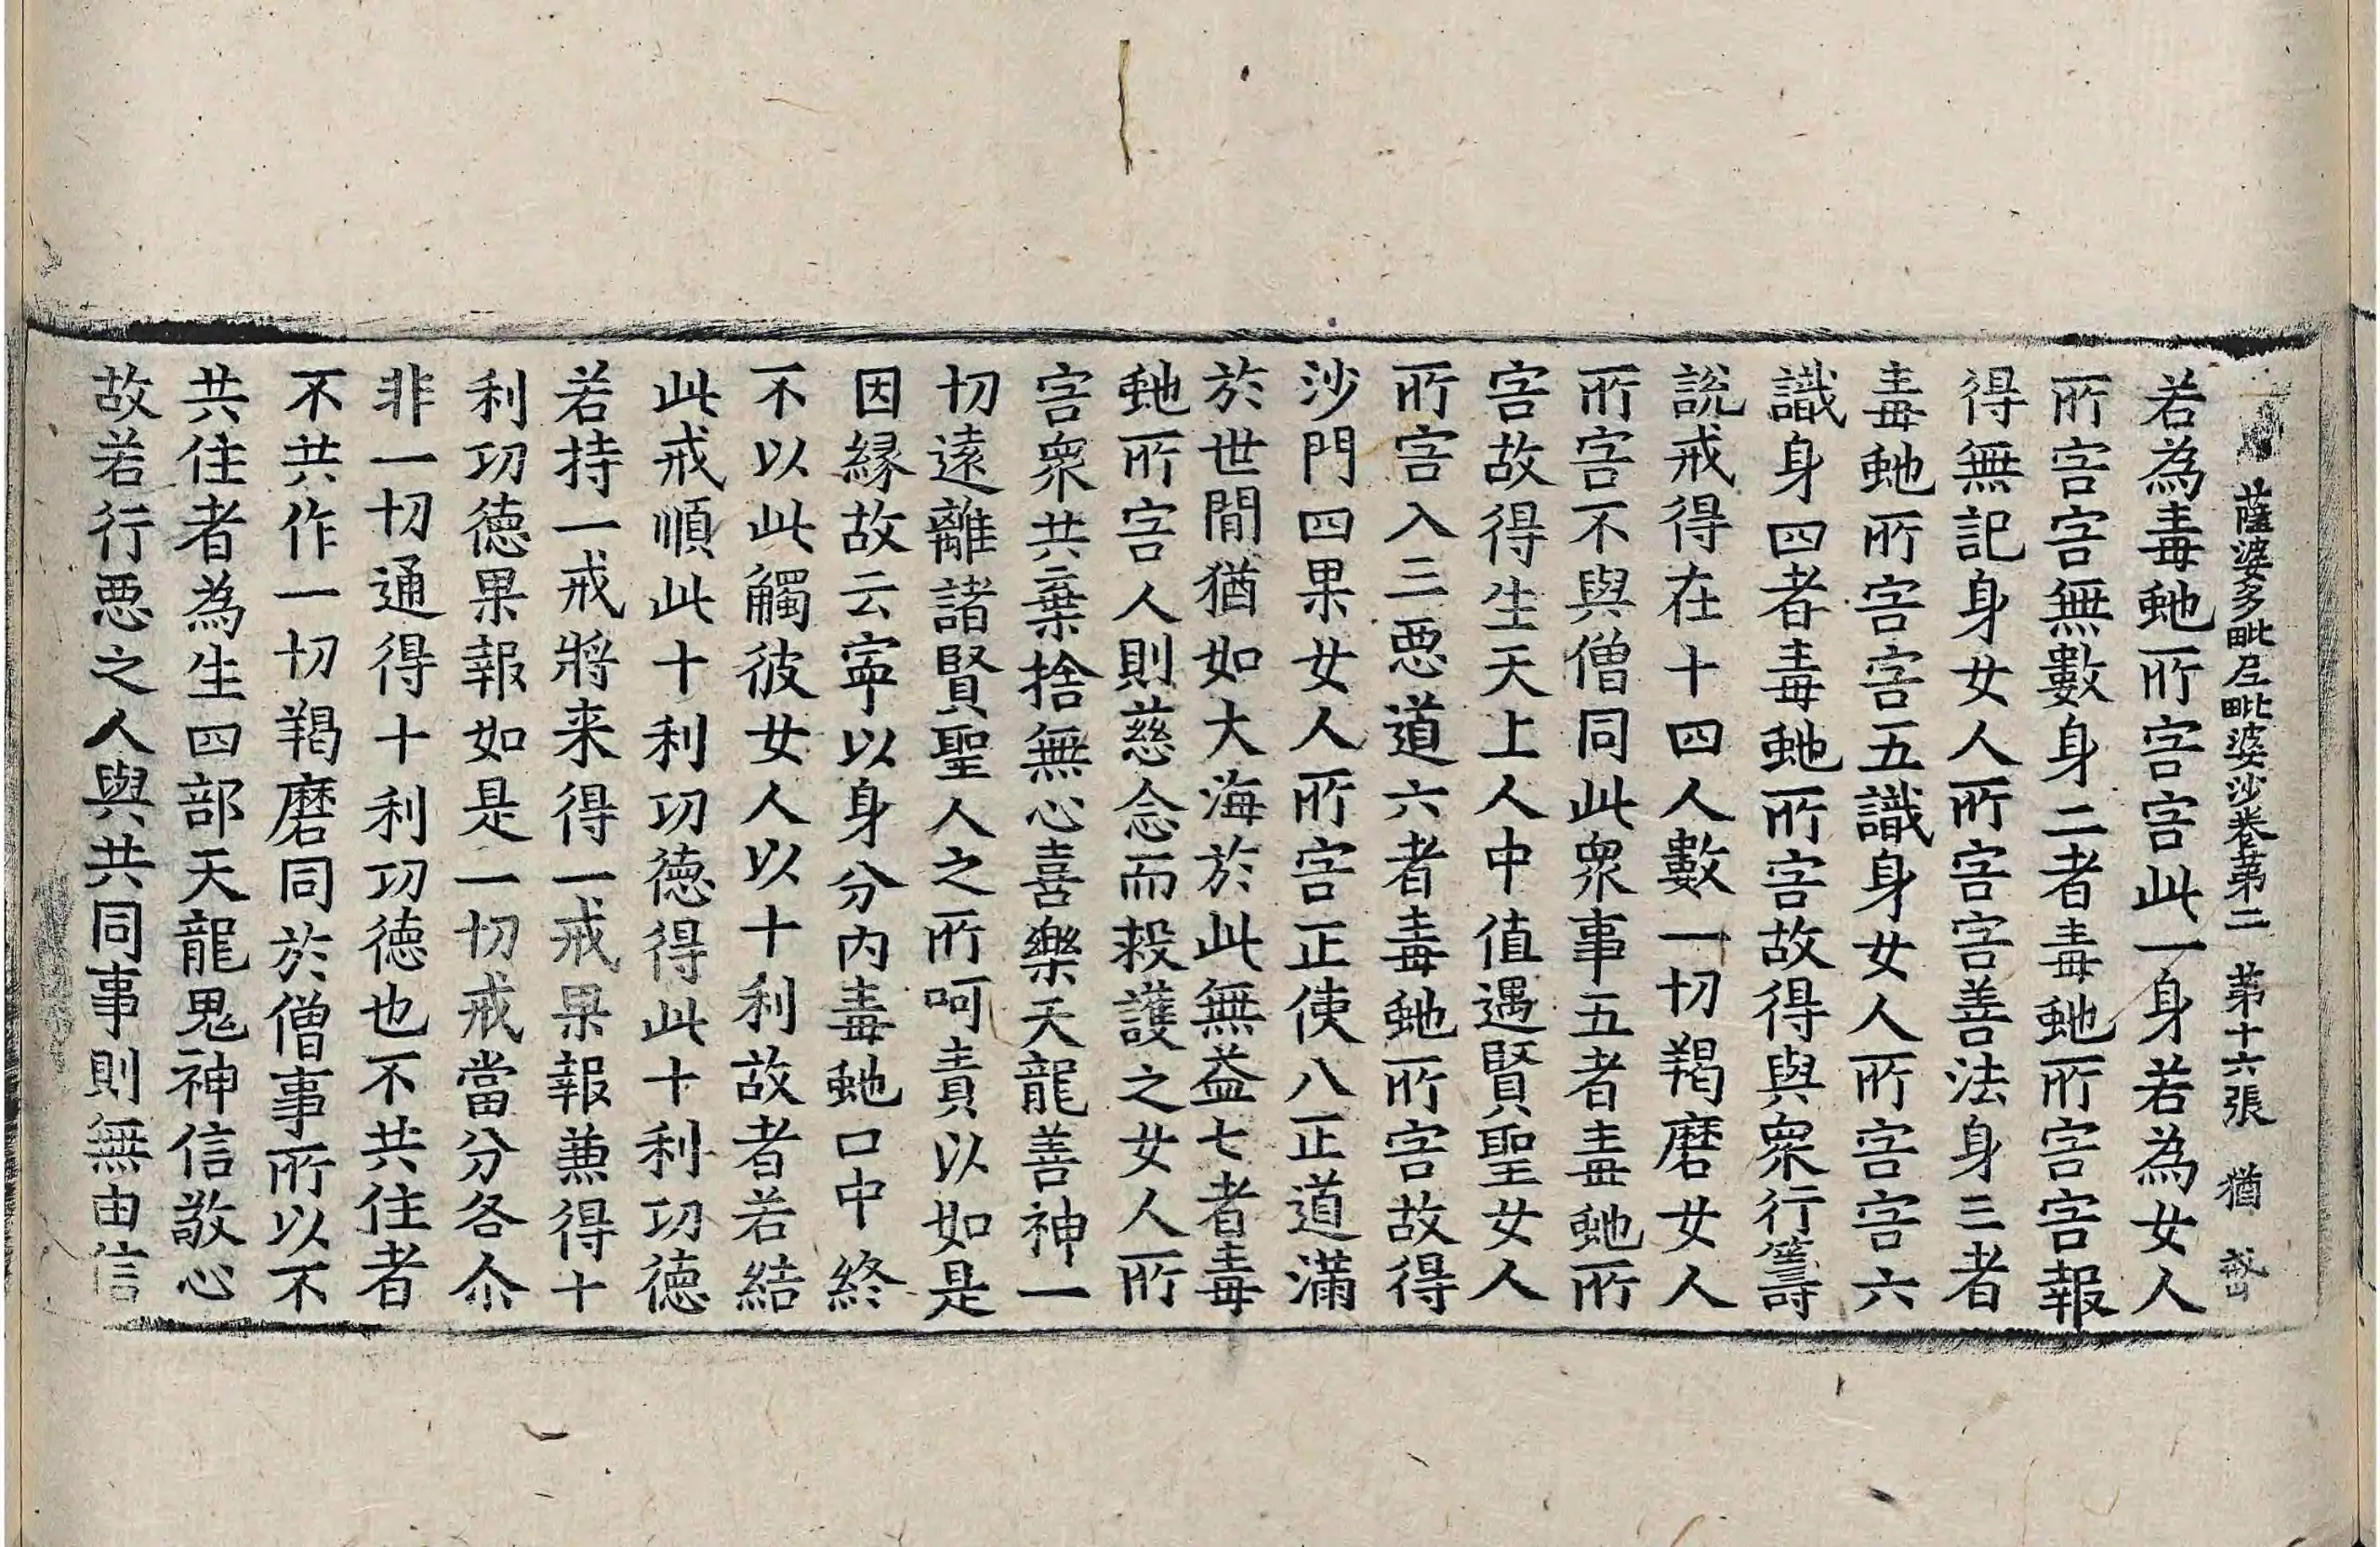 薩婆多毗尼毗婆沙卷第二 第十六張 猶
若為毒虵所害害此一身若為女人
所害害無數身二者毒虵所害害報
得無記身女人所害害善法身三者
毒虵所害害五識身女人所害害六
識身四者毒虵所害故得與衆行籌
說戒得在十四人數一切羯磨女人
所害不與僧同此衆事五者毒虵所
害故得生天上人中值遇賢聖女人
所害入三惡道六者毒虵所害故得
沙門四果女人所害正使八正道滿
於世間猶如大海於此無益七者毒
虵所害人則慈念而救護之女人所
害衆共棄捨無心喜樂天龍善神一
切遠離諸賢聖人之所呵責以如是
因緣故云寧以身分內毒虵口中終
不以此觸彼女人以十利故者若結
此戒順此十利功德得此十利功德
若持一戒將来得一戒果報兼得十
利功德果報如是一切戒當分各尒
非一切通得十利功德也不共住者
不共作一切羯磨同於僧事所以不
共住者為生四部天龍鬼神信敬心
故若行惡之人與共同事則無由信